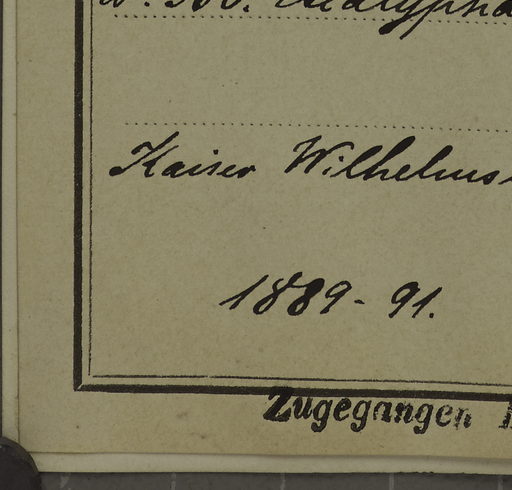 Kaiser Wilhelms
1889-91.
Zugegangen